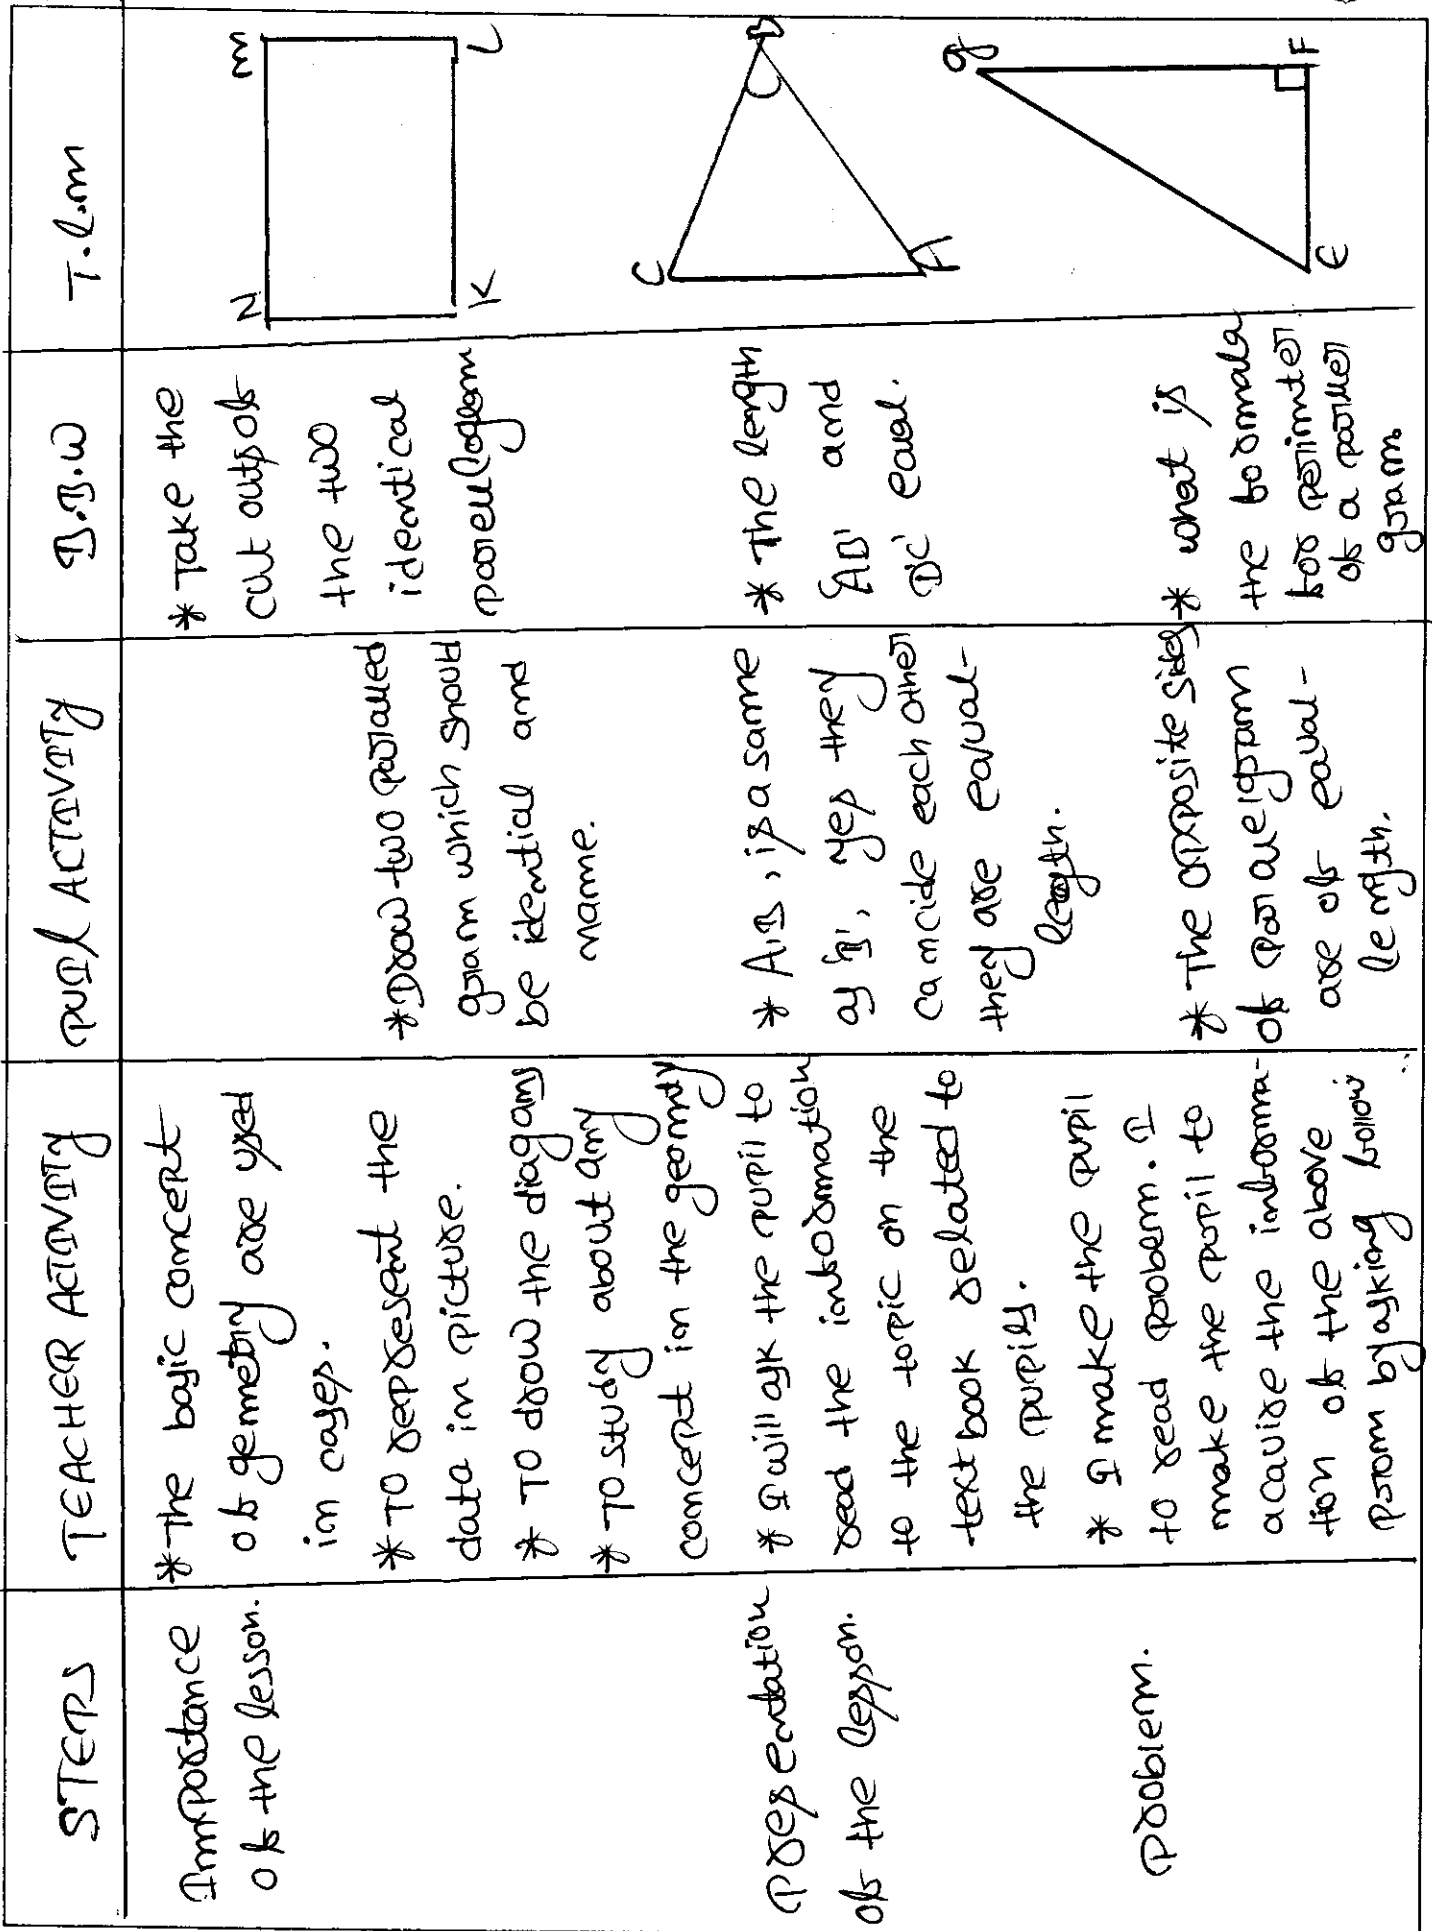 STEPS
TEACHER ACTIVITY
PUIL ACTIVITY
B.B.W
T.L.M
Importance
of the lesson.
*The basic concept
of gemetry are used
in cases.
*TO represent the
data in picture.
* TO drow the diagams
*TO study about amy
concept in the geomty
*Drow two paralled
gram which should
be idential and
name.
* Take the
cut outs of
the two
identical
parellogram
N
M
K
L
Presentation
of the lesson.
* I will ask the pupil to
read the information
to the topic on the
text book related to
the pupils.
* A,B, is a same
as B', yes they
camcide each other
they are equal-
length.
* The length
AB' and
DC' equal.
C
B
A
problem.
* I make the pupil
to read probem. I
make the pupil to
acquire the informa-
tion of the above
prom by asking follow
* The opposite sides
of paralelgram
are of equal-
length.
* what is
the formala
for perimter
of a parllel
gram.
g
F
E